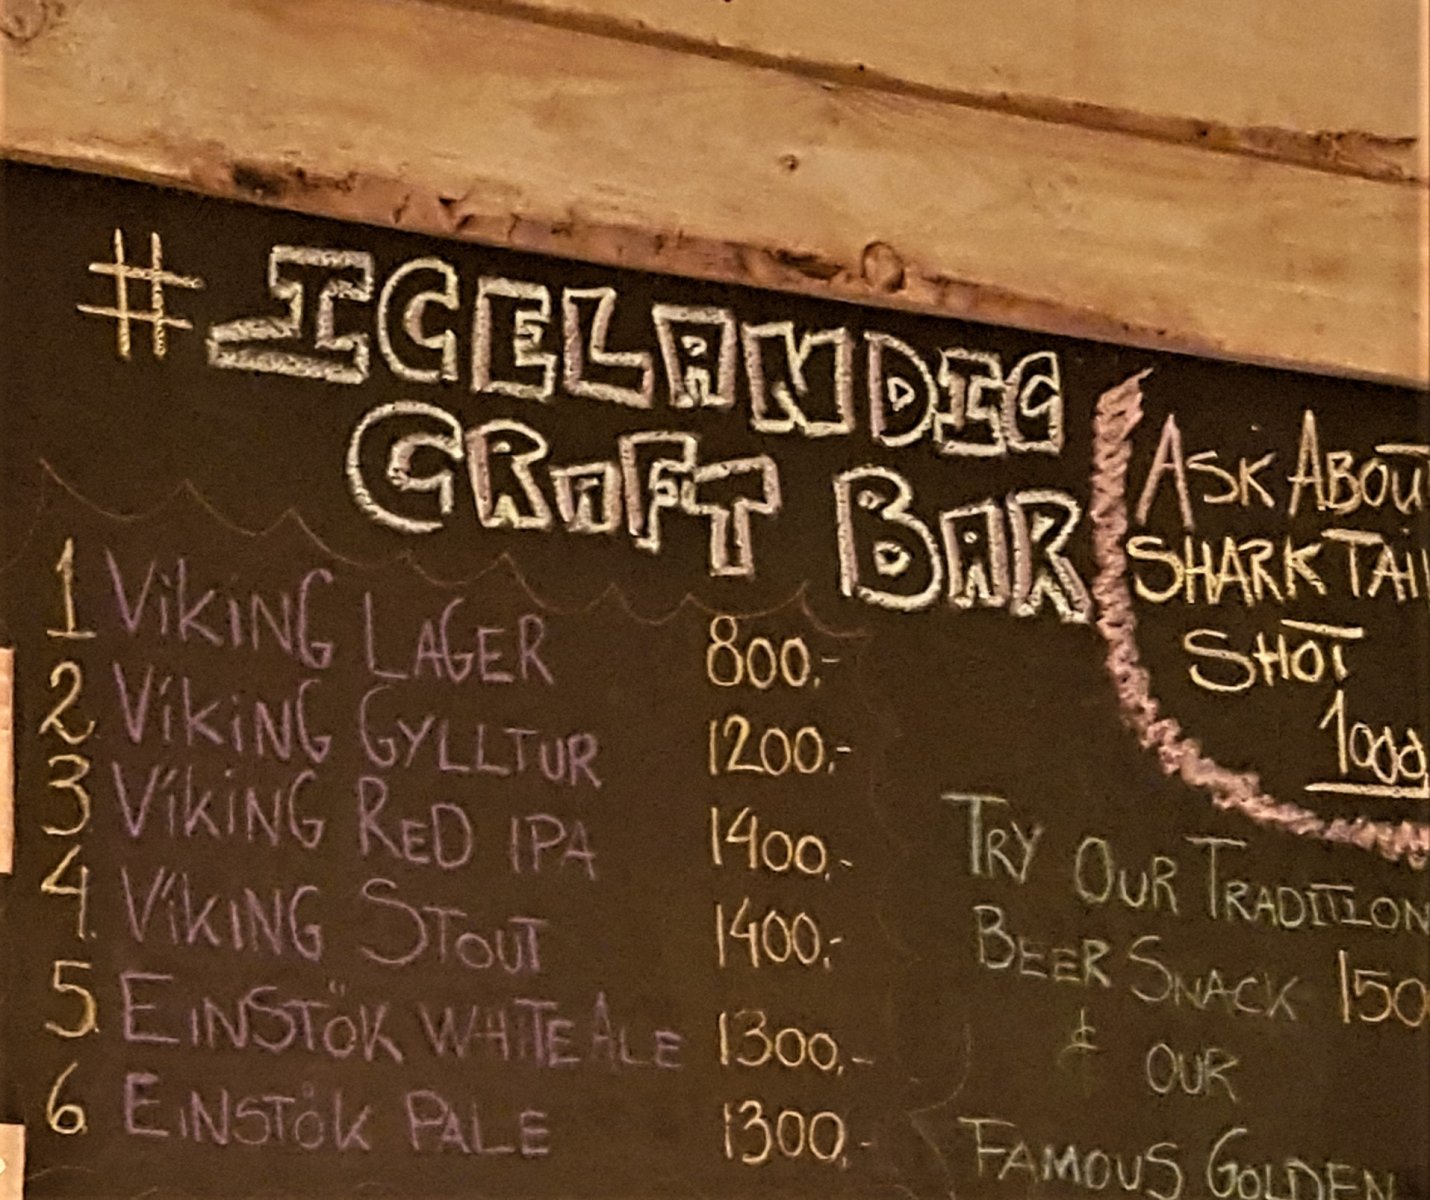 # ICELANDIC
CRAFT BAR
1 VIKING LAGER 800,-
2 VIKING GYLLTUR 1200,-
3 VIKING RED IPA 1400,-
4 VIKING STOUT 1400,-
5. EINSTÖK WHITE ALE 1300,-
6. EINSTÖK PALE 1300,-
ASK ABOUT
SHARK TAIL
SHOT
1000
TRY OUR TRADITION
BEER SNACK 150
& OUR
FAMOUS GOLDEN